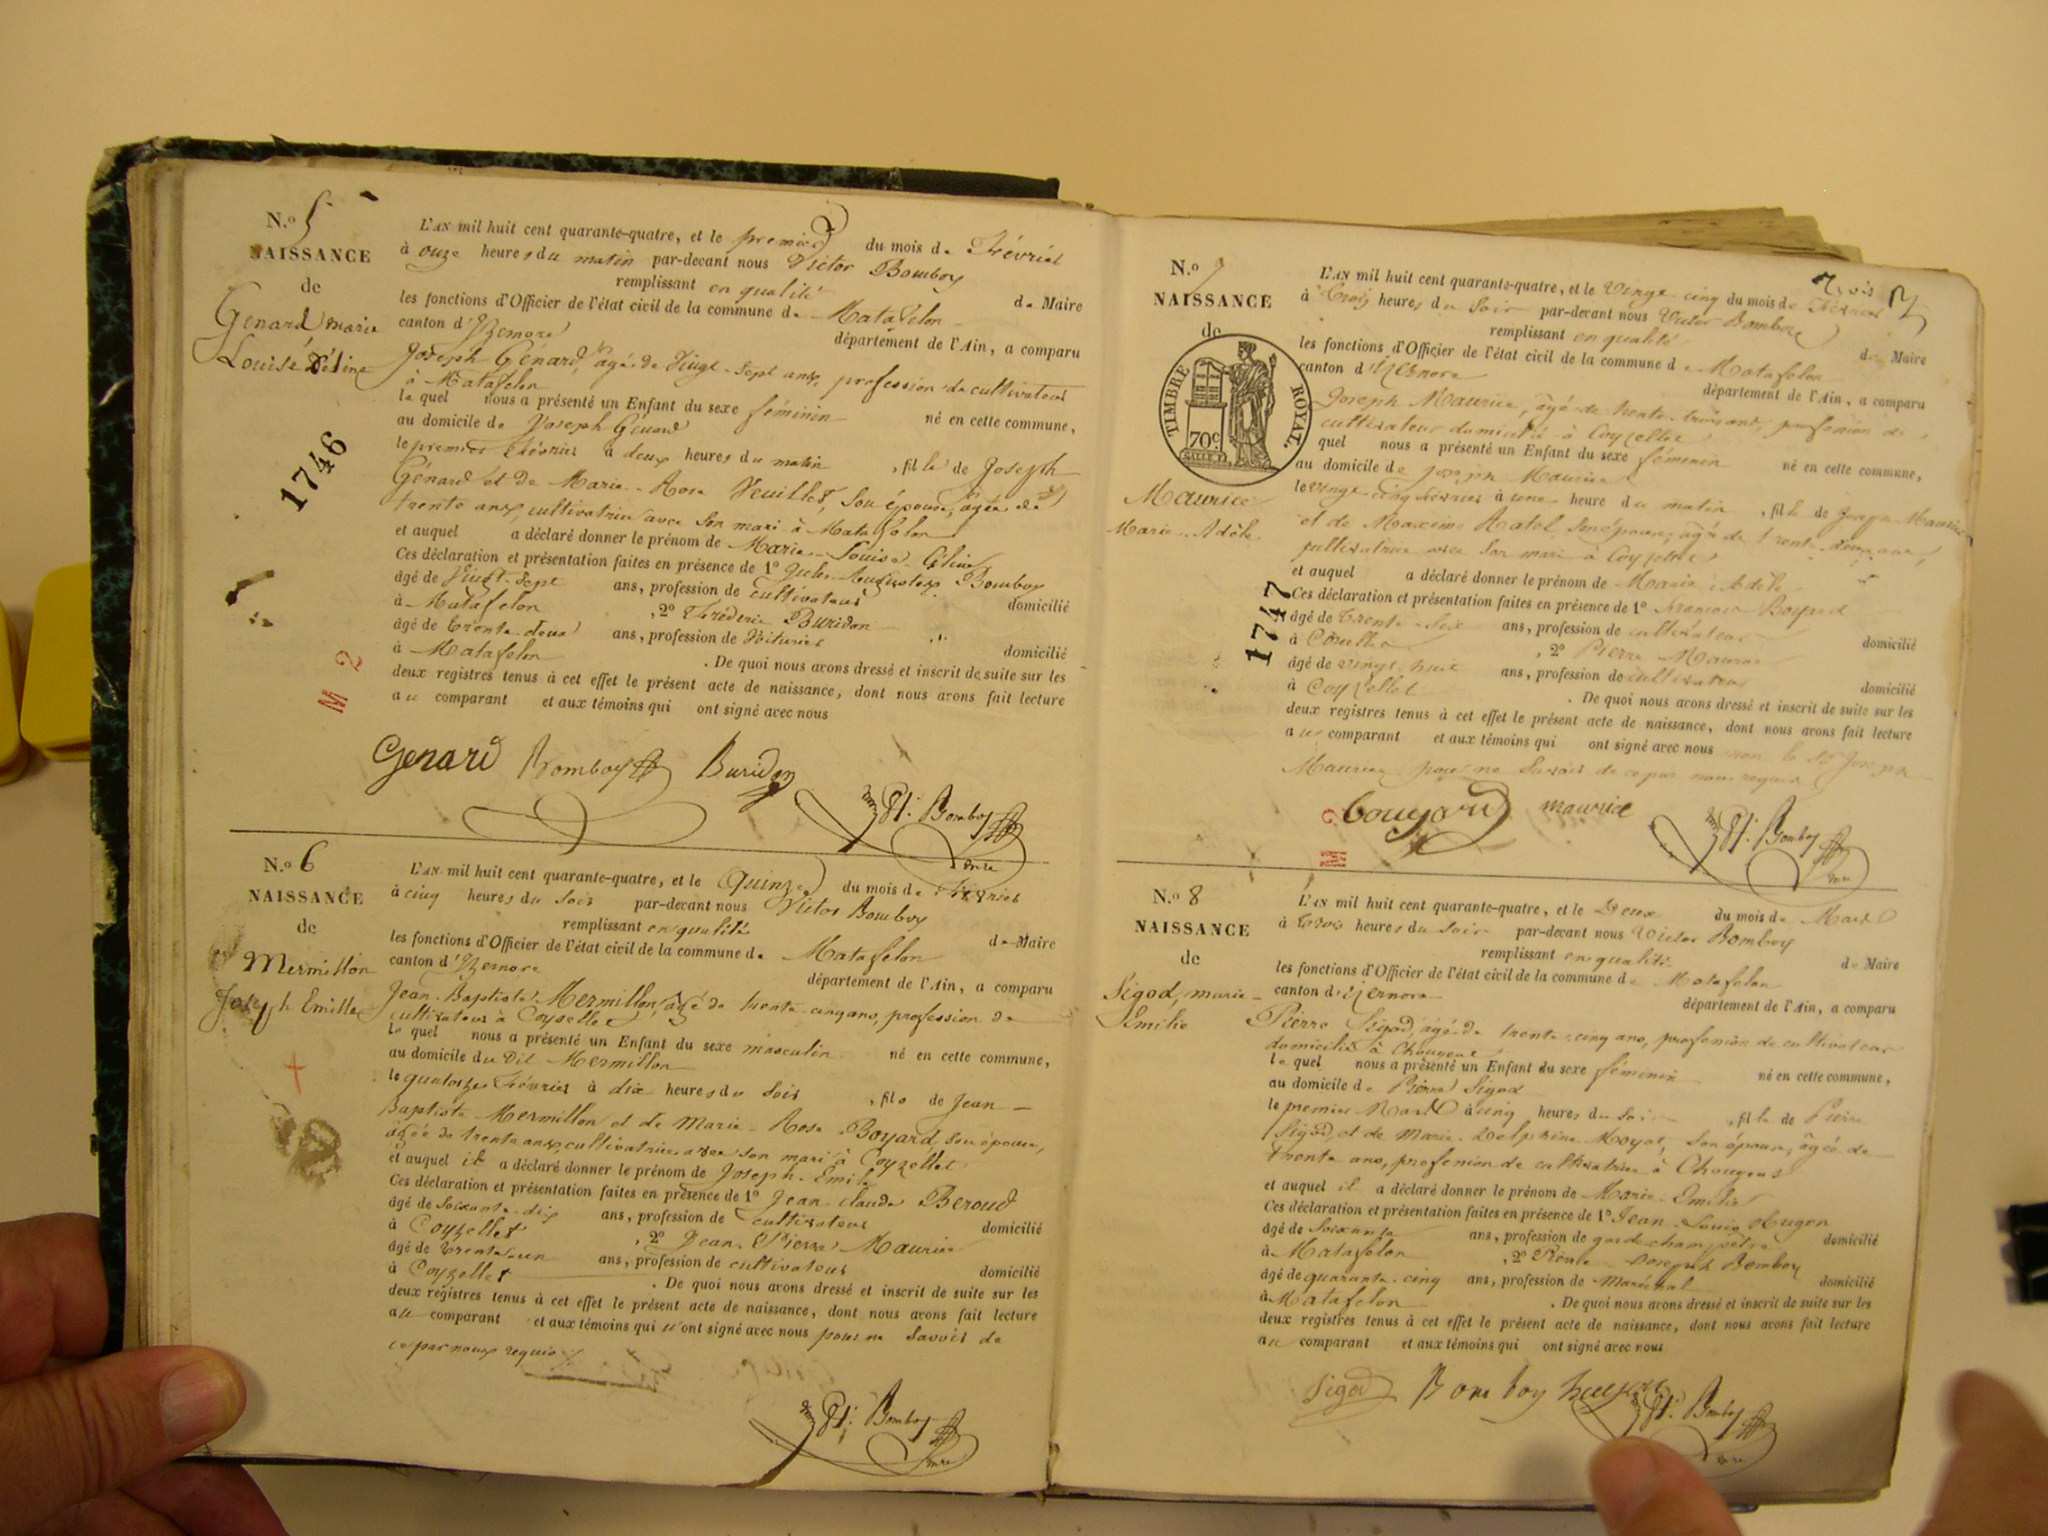 N.o 5
NAISSANCE
de
Génard marie
Louise Céline
1746
M 2
L'AN mil huit cent quarante-quatre, et le premier du mois de Février
à onze heures du matin par-devant nous Victor Bomboy
remplissant en qualité de Maire
les fonctions d'Officier de l'état civil de la commune de Matafelon
canton d'Izernore département de l'Ain, a comparu
Joseph Génard, âgé de Vingt-sept ans, profession de cultivateur
à Matafelon
le quel nous a présenté un Enfant du sexe féminin né en cette commune,
au domicile de Joseph Génard
le premier février à deux heures du matin, fille de Joseph
Génard et de Marie-Rose Veuillet, son épouse, âgée de
trente ans, cultivatrice avec son mari à Matafelon
et auquel a déclaré donner le prénom de Marie-Louise-Céline
Ces déclaration et présentation faites en présence de 1o Bomboy
âgé de Vingt-sept ans, profession de cultivateur domicilié
à Matafelon, 2o Fréderic Buridon
âgé de trente-deux ans, profession de Voiturier domicilié
à Matafelon. De quoi nous avons dressé et inscrit de suite sur les
deux registres tenus à cet effet le présent acte de naissance, dont nous avons fait lecture
au comparant et aux témoins qui ont signé avec nous
Genard Bomboy Buridon
Bomboy
N.o 6
NAISSANCE
de
Mermillon
Joseph Emille
L'AN mil huit cent quarante-quatre, et le Quinze du mois de Février
à cinq heures du soir par-devant nous Victor Bomboy
remplissant en qualité de Maire
les fonctions d'Officier de l'état civil de la commune de Matafelon
canton d'Izernore département de l'Ain, a comparu
Jean-Baptiste Mermillon, âgé de trente-cinq ans, profession de
cultivateur à Coyzellet
le quel nous a présenté un Enfant du sexe masculin né en cette commune,
au domicile du dit Mermillon
le quatorze Février à dix heures du soir, fils de Jean-
Baptiste Mermillon et de Marie-Rose Boyard, son épouse,
âgée de trente ans, cultivatrice avec son mari à Coyzellet
et auquel il a déclaré donner le prénom de Joseph-Emile
Ces déclaration et présentation faites en présence de 1o Jean-claude Beroud
âgé de soixante-dix ans, profession de cultivateur domicilié
à Coyzellet, 2o Jean-Pierre Maurice
âgé de trente-un ans, profession de cultivateur domicilié
à Coyzellet. De quoi nous avons dressé et inscrit de suite sur les
deux registres tenus à cet effet le présent acte de naissance, dont nous avons fait lecture
au comparant et aux témoins qui n'ont signé avec nous pour ne savoir de
ce par nous requis
Bomboy
trois
N.o 7
NAISSANCE
de
TIMBRE ROYAL
70c
Maurice
Marie-Adèle
1747
M 2
L'AN mil huit cent quarante-quatre, et le Vingt-cinq du mois de Février
à trois heures du soir par-devant nous Victor Bomboy
remplissant en qualité de Maire
les fonctions d'Officier de l'état civil de la commune de Matafelon
canton d'Izernore département de l'Ain, a comparu
Joseph Maurice, âgé de trente-trois ans, profession de
cultivateur domicilié à Coyzellet
quel nous a présenté un Enfant du sexe féminin né en cette commune,
au domicile de Joseph Maurice
le vingt-cinq février à une heure du matin, fille de Joseph Maurice
et de Maxime Ratel, son épouse, âgée de trente-deux ans,
cultivatrice avec son mari à Coyzellet
et auquel a déclaré donner le prénom de Marie-Adèle
Ces déclaration et présentation faites en présence de 1o François Boyard
âgé de trente-six ans, profession de cultivateur domicilié
à, 2o Pierre Maurice
âgé de vingt-huit ans, profession de cultivateur domicilié
à Coyzellet. De quoi nous avons dressé et inscrit de suite sur les
deux registres tenus à cet effet le présent acte de naissance, dont nous avons fait lecture
au comparant et aux témoins qui ont signé avec nous non le sr Joseph
Maurice pour ne savoir de ce par nous requis
maurice Bomboy
N.o 8
NAISSANCE
de
Sigod, marie-
Emilie
L'AN mil huit cent quarante-quatre, et le Deux du mois de Mars
à trois heures du soir par-devant nous Victor Bomboy
remplissant en qualité de Maire
les fonctions d'Officier de l'état civil de la commune de Matafelon
canton d'Izernore département de l'Ain, a comparu
Pierre Sigod, âgé de trente-cinq ans, profession de cultivateur
domicilié à Chougeat
le quel nous a présenté un Enfant du sexe féminin né en cette commune,
au domicile de Pierre Sigod
le premier Mars à cinq heures du soir, fille de Pierre
Sigod, et de Marie-Delphine Moyet, son épouse, âgée de
trente ans, profession de cultivatrice à Chougeat
et auquel il a déclaré donner le prénom de Marie-Emilie
Ces déclaration et présentation faites en présence de 1o Jean-Louis Hugon
âgé de soixante ans, profession de garde champêtre domicilié
à Matafelon, 2o Pierre-Joseph Bomboy
âgé de quarante-cinq ans, profession de Maréchal domicilié
à Matafelon. De quoi nous avons dressé et inscrit de suite sur les
deux registres tenus à cet effet le présent acte de naissance, dont nous avons fait lecture
au comparant et aux témoins qui ont signé avec nous
Sigod Bomboy
Bomboy